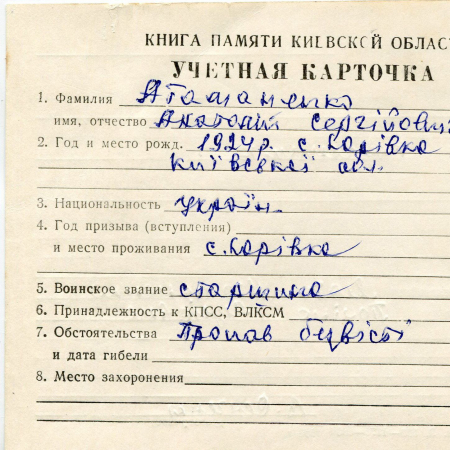 КНИГА ПАМЯТИ КИЕВСКОЙ ОБЛАС
УЧЕТНАЯ КАРТОЧКА
1. Фамилия Атаманенко
имя, отчество Анатолий Сергійович
2. Год и место рожд. 1924 р. с. Корівка
Київської обл.
3. Национальность україн.
4. Год призыва (вступления)
и место проживания с. Корівка
5. Воинское звание старшина
6. Принадлежность к КПСС, ВЛКСМ
7. Обстоятельства Пропав безвісті
и дата гибели
8. Место захоронения